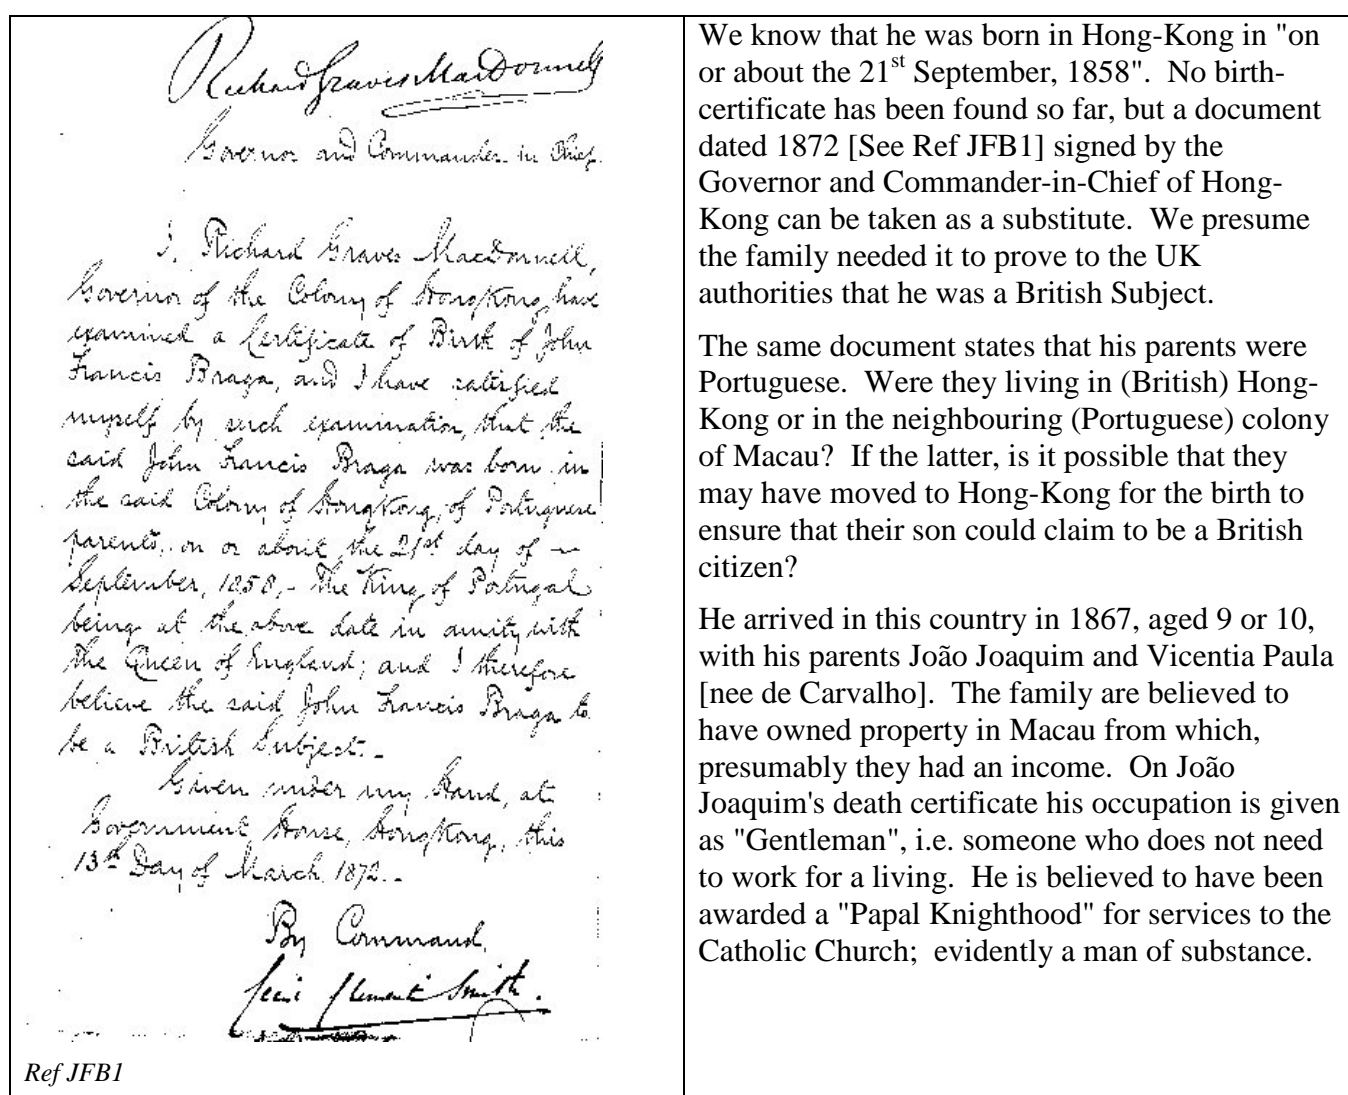 Richard Graves MacDonnell
Governor and Commander in Chief.
I, Richard Graves MacDonnell,
Governor of the Colony of HongKong, have
examined a Certificate of Birth of John
Francis Braga, and I have satisfied
myself by such examination, that the
said John Francis Braga was born in
the said Colony of HongKong, of Portuguese
parents, on or about the 21st day of
September, 1858,- The King of Portugal
being at the above date in amity with
the Queen of England; and I therefore
believe the said John Francis Braga to
be a British Subject.-
Given under my Hand, at
Government House, HongKong, this
13th Day of March 1872.-
By Command,
Clement Smith.
Ref JFB1
We know that he was born in Hong-Kong in "on
or about the 21st September, 1858".  No birth-
certificate has been found so far, but a document
dated 1872 [See Ref JFB1] signed by the
Governor and Commander-in-Chief of Hong-
Kong can be taken as a substitute.  We presume
the family needed it to prove to the UK
authorities that he was a British Subject.
The same document states that his parents were
Portuguese.  Were they living in (British) Hong-
Kong or in the neighbouring (Portuguese) colony
of Macau?  If the latter, is it possible that they
may have moved to Hong-Kong for the birth to
ensure that their son could claim to be a British
citizen?
He arrived in this country in 1867, aged 9 or 10,
with his parents João Joaquim and Vicentia Paula
[nee de Carvalho].  The family are believed to
have owned property in Macau from which,
presumably they had an income.  On João
Joaquim's death certificate his occupation is given
as "Gentleman", i.e. someone who does not need
to work for a living.  He is believed to have been
awarded a "Papal Knighthood" for services to the
Catholic Church;  evidently a man of substance.